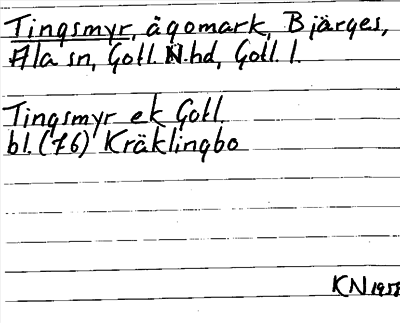 Tingsmyr, ägomark, Bjärges,
Ala sn, Gotl. N.hd, Gotl. l.
Tingsmyr ek Gotl.
bl. (76) Kräklingbo
KN 1958